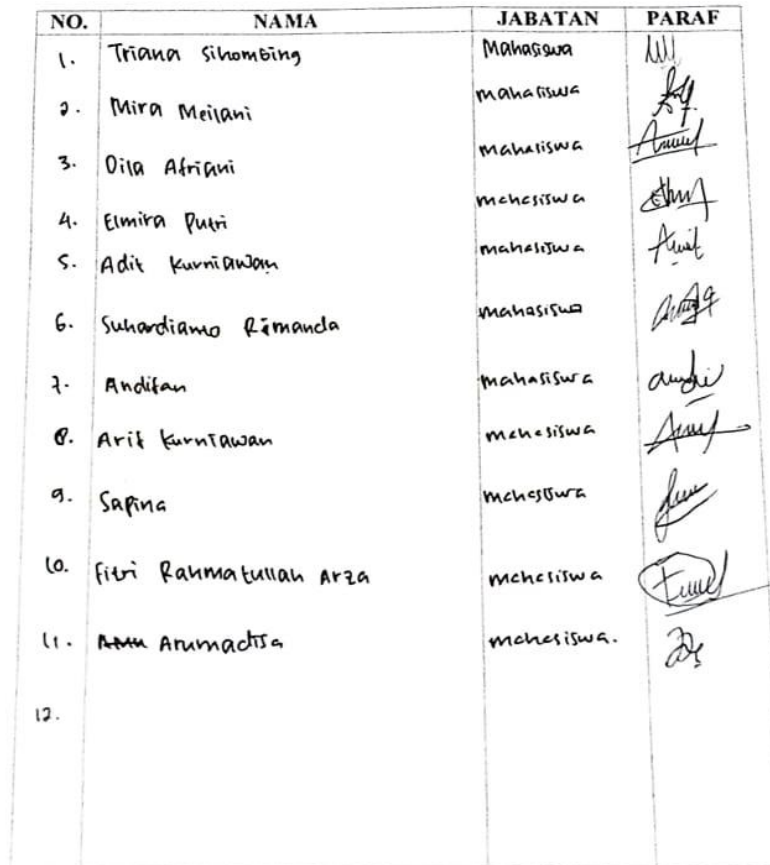 NO. NAMA JABATAN PARAF
1. Triana Sihombing Mahasiswa
2. Mira Meilani mahasiswa
3. Dila Afriani mahasiswa
4. Elmira Putri mahasiswa
5. Adit Kurniawan mahasiswa
6. Suhardiamo Rimanda mahasiswa
7. Andifan mahasiswa
8. Arif Kurniawan mahasiswa
9. Safina mahasiswa
10. Fitri Rahmatullah Arza mahasiswa
11. Arumadisa mahasiswa.
12.